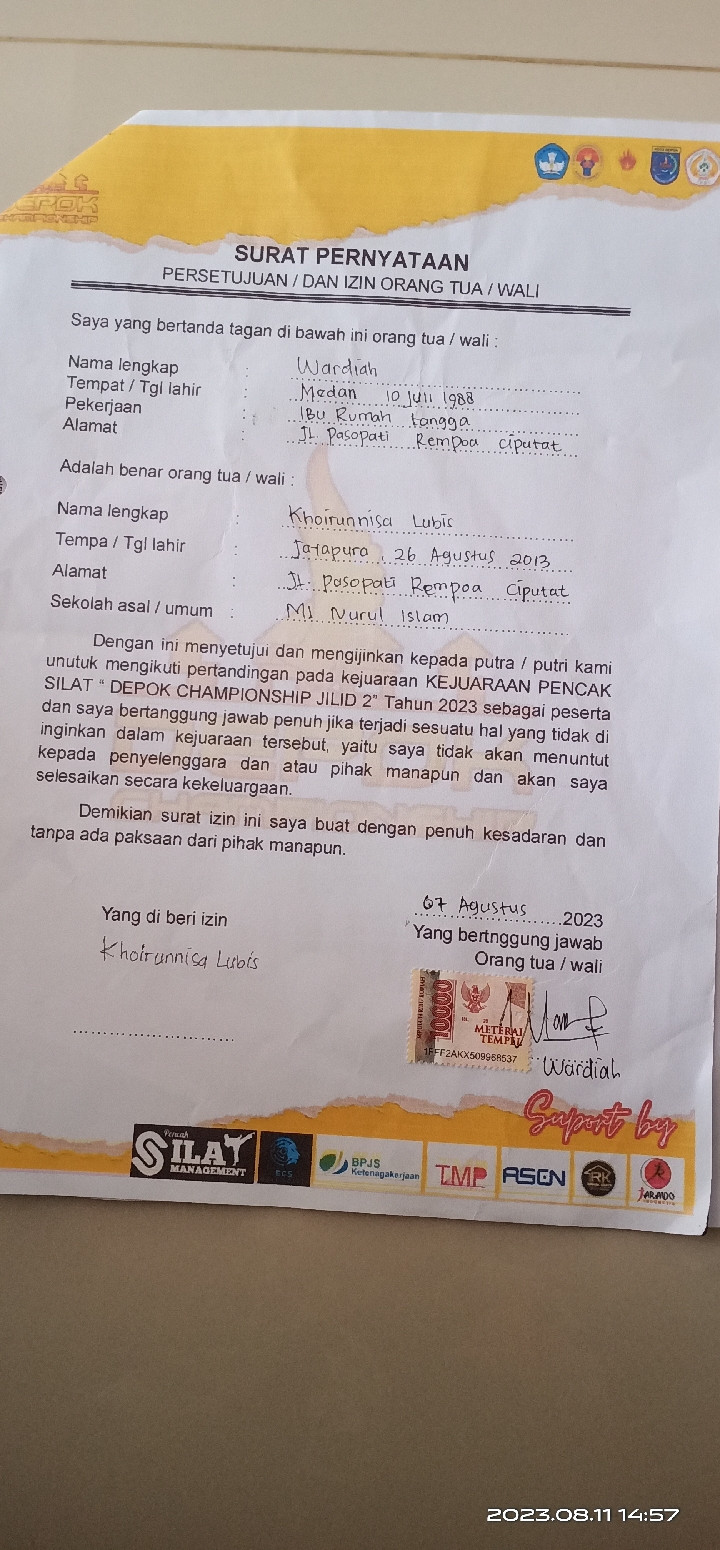 DEPOK
CHAMPIONSHIP
SURAT PERNYATAAN
PERSETUJUAN / DAN IZIN ORANG TUA / WALI
Saya yang bertanda tagan di bawah ini orang tua / wali :
Nama lengkap : Wardiah
Tempat / Tgl lahir : Medan 10 Juli 1988
Pekerjaan : IBu Rumah tangga
Alamat : Jl. Pasopati Rempoa Ciputat
Adalah benar orang tua / wali :
Nama lengkap : Khoirunnisa Lubis
Tempa / Tgl lahir : Jayapura, 26 Agustus 2013
Alamat : Jl. Pasopati Rempoa Ciputat
Sekolah asal / umum : MI Nurul Islam
Dengan ini menyetujui dan mengijinkan kepada putra / putri kami
unutuk mengikuti pertandingan pada kejuaraan KEJUARAAN PENCAK
SILAT “ DEPOK CHAMPIONSHIP JILID 2” Tahun 2023 sebagai peserta
dan saya bertanggung jawab penuh jika terjadi sesuatu hal yang tidak di
inginkan dalam kejuaraan tersebut, yaitu saya tidak akan menuntut
kepada penyelenggara dan atau pihak manapun dan akan saya
selesaikan secara kekeluargaan.
Demikian surat izin ini saya buat dengan penuh kesadaran dan
tanpa ada paksaan dari pihak manapun.
07 Agustus 2023
Yang di beri izin
Yang bertnggung jawab
Orang tua / wali
Khoirunnisa Lubis
10000
METERAI
TEMPEL
1FFF2AKX509968537
Wardiah
Suport by
Pencak
SILAT
MANAGEMENT
BPJS
Ketenagakerjaan
TMP
ASCN
RK
2023.08.11 14:57